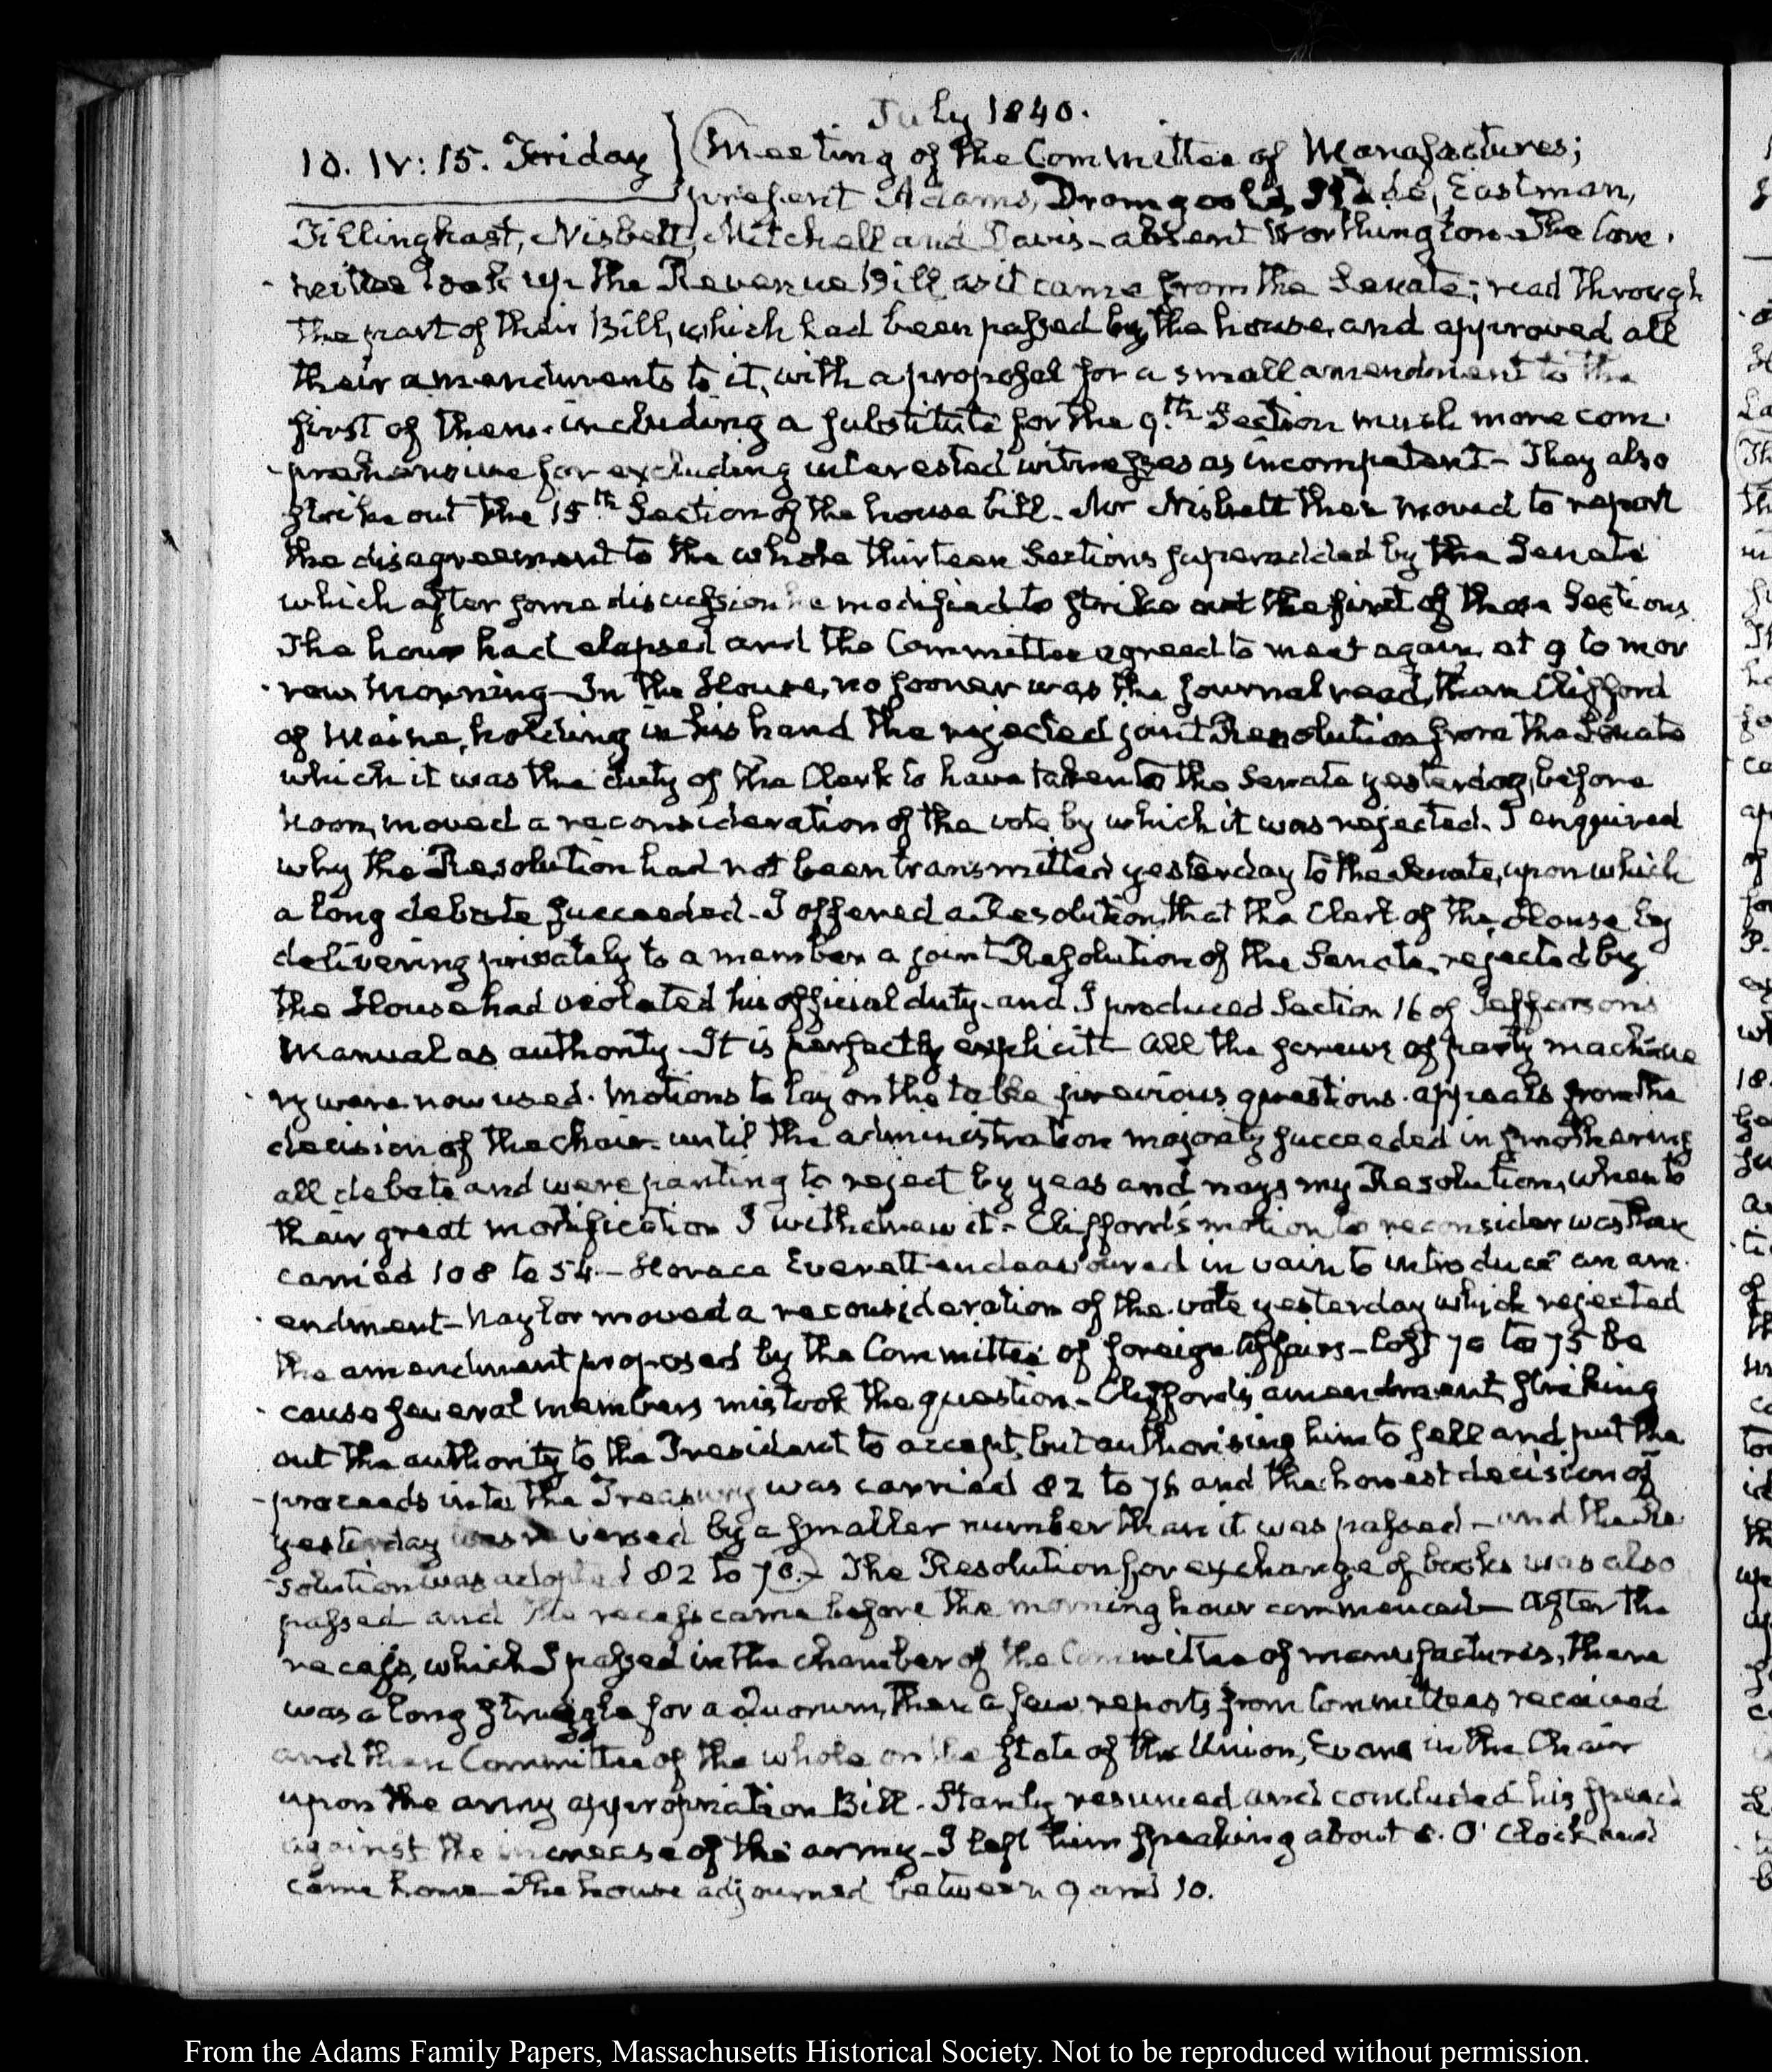 July 1840.
10. IV:15. Friday } Meeting of the Committee of Manufactures;
present Adams, Dromgoole, Slade, Eastman,
Tillinghast, Nisbett, Mitchell and Davis - absent Worthington. The Com-
mittee took up the Revenue Bill as it came from the Senate; read through
the part of their Bill, which had been passed by the house, and approved all
their amendments to it, with a proposal for a small amendment to the
first of them. including a substitute for the 9.th Section much more com-
-prehensive for excluding interested witnesses as incompetent - They also
strike out the 15th Section of the house bill. Mr Nisbett then moved to report
the disagreement to the whole thirteen Sections superadded by the Senate
which after some discussion he modified to strike out the first of those Sections
The hour had elapsed and the Committee agreed to meet again at 9 to mor
-row Morning - In the House, no sooner was the journal read, than Clifford
of Maine, holding in his hand the rejected joint Resolution from the Senate
which it was the duty of the Clerk to have taken to the Senate yesterday, before
Noon, moved a reconsideration of the vote by which it was rejected. I enquired
why the Resolution had not been transmitted yesterday to the Senate, upon which
a long debate succeeded - I offered a Resolution, that the Clerk of the House by
delivering privately to a member a joint Resolution of the Senate, rejected by
the House had violated his official duty - and I produced Section 16 of Jefferson's
Manual as authority - It is perfectly explicit - All the screws of party machine
-ry were now used. Motions to lay on the table previous questions. appeals from the
decision of the chair - until the administration majority succeeded in smothering
all debate and were panting to reject by yeas and nays my Resolution, when to
their great mortification I withdrew it - Clifford's motion to reconsider was then
carried 108 to 54. - Horace Everett endeavoured in vain to introduce an am-
-endment - Naylor moved a reconsideration of the vote yesterday which rejected
the amendment proposed by the Committee of foreign Affairs - lost 70 to 75 be
-cause several members mistook the question - Clifford's amendment, striking
out the authority to the President to accept, but authorising him to sell and put the
-proceeds into the Treasury was carried 82 to 76 and the honest decision of
yesterday was reversed by a smaller number than it was passed - and the Re-
-solution was adopted 82 to 70. - The Resolution for exchange of books was also
passed and the recess came before the morning hour commenced - After the
recess, which I passed in the chamber of the Committee of manufactures, there
was a long struggle for a Quorum, then a few reports from Committees received
and then Committee of the whole on the State of the Union, Evans in the Chair
upon the army appropriation Bill. Stanly resumed and concluded his speech
against the increase of the army - I left him speaking about 8. O'Clock and
came home - The house adjourned between 9 and 10.
From the Adams Family Papers, Massachusetts Historical Society. Not to be reproduced without permission.